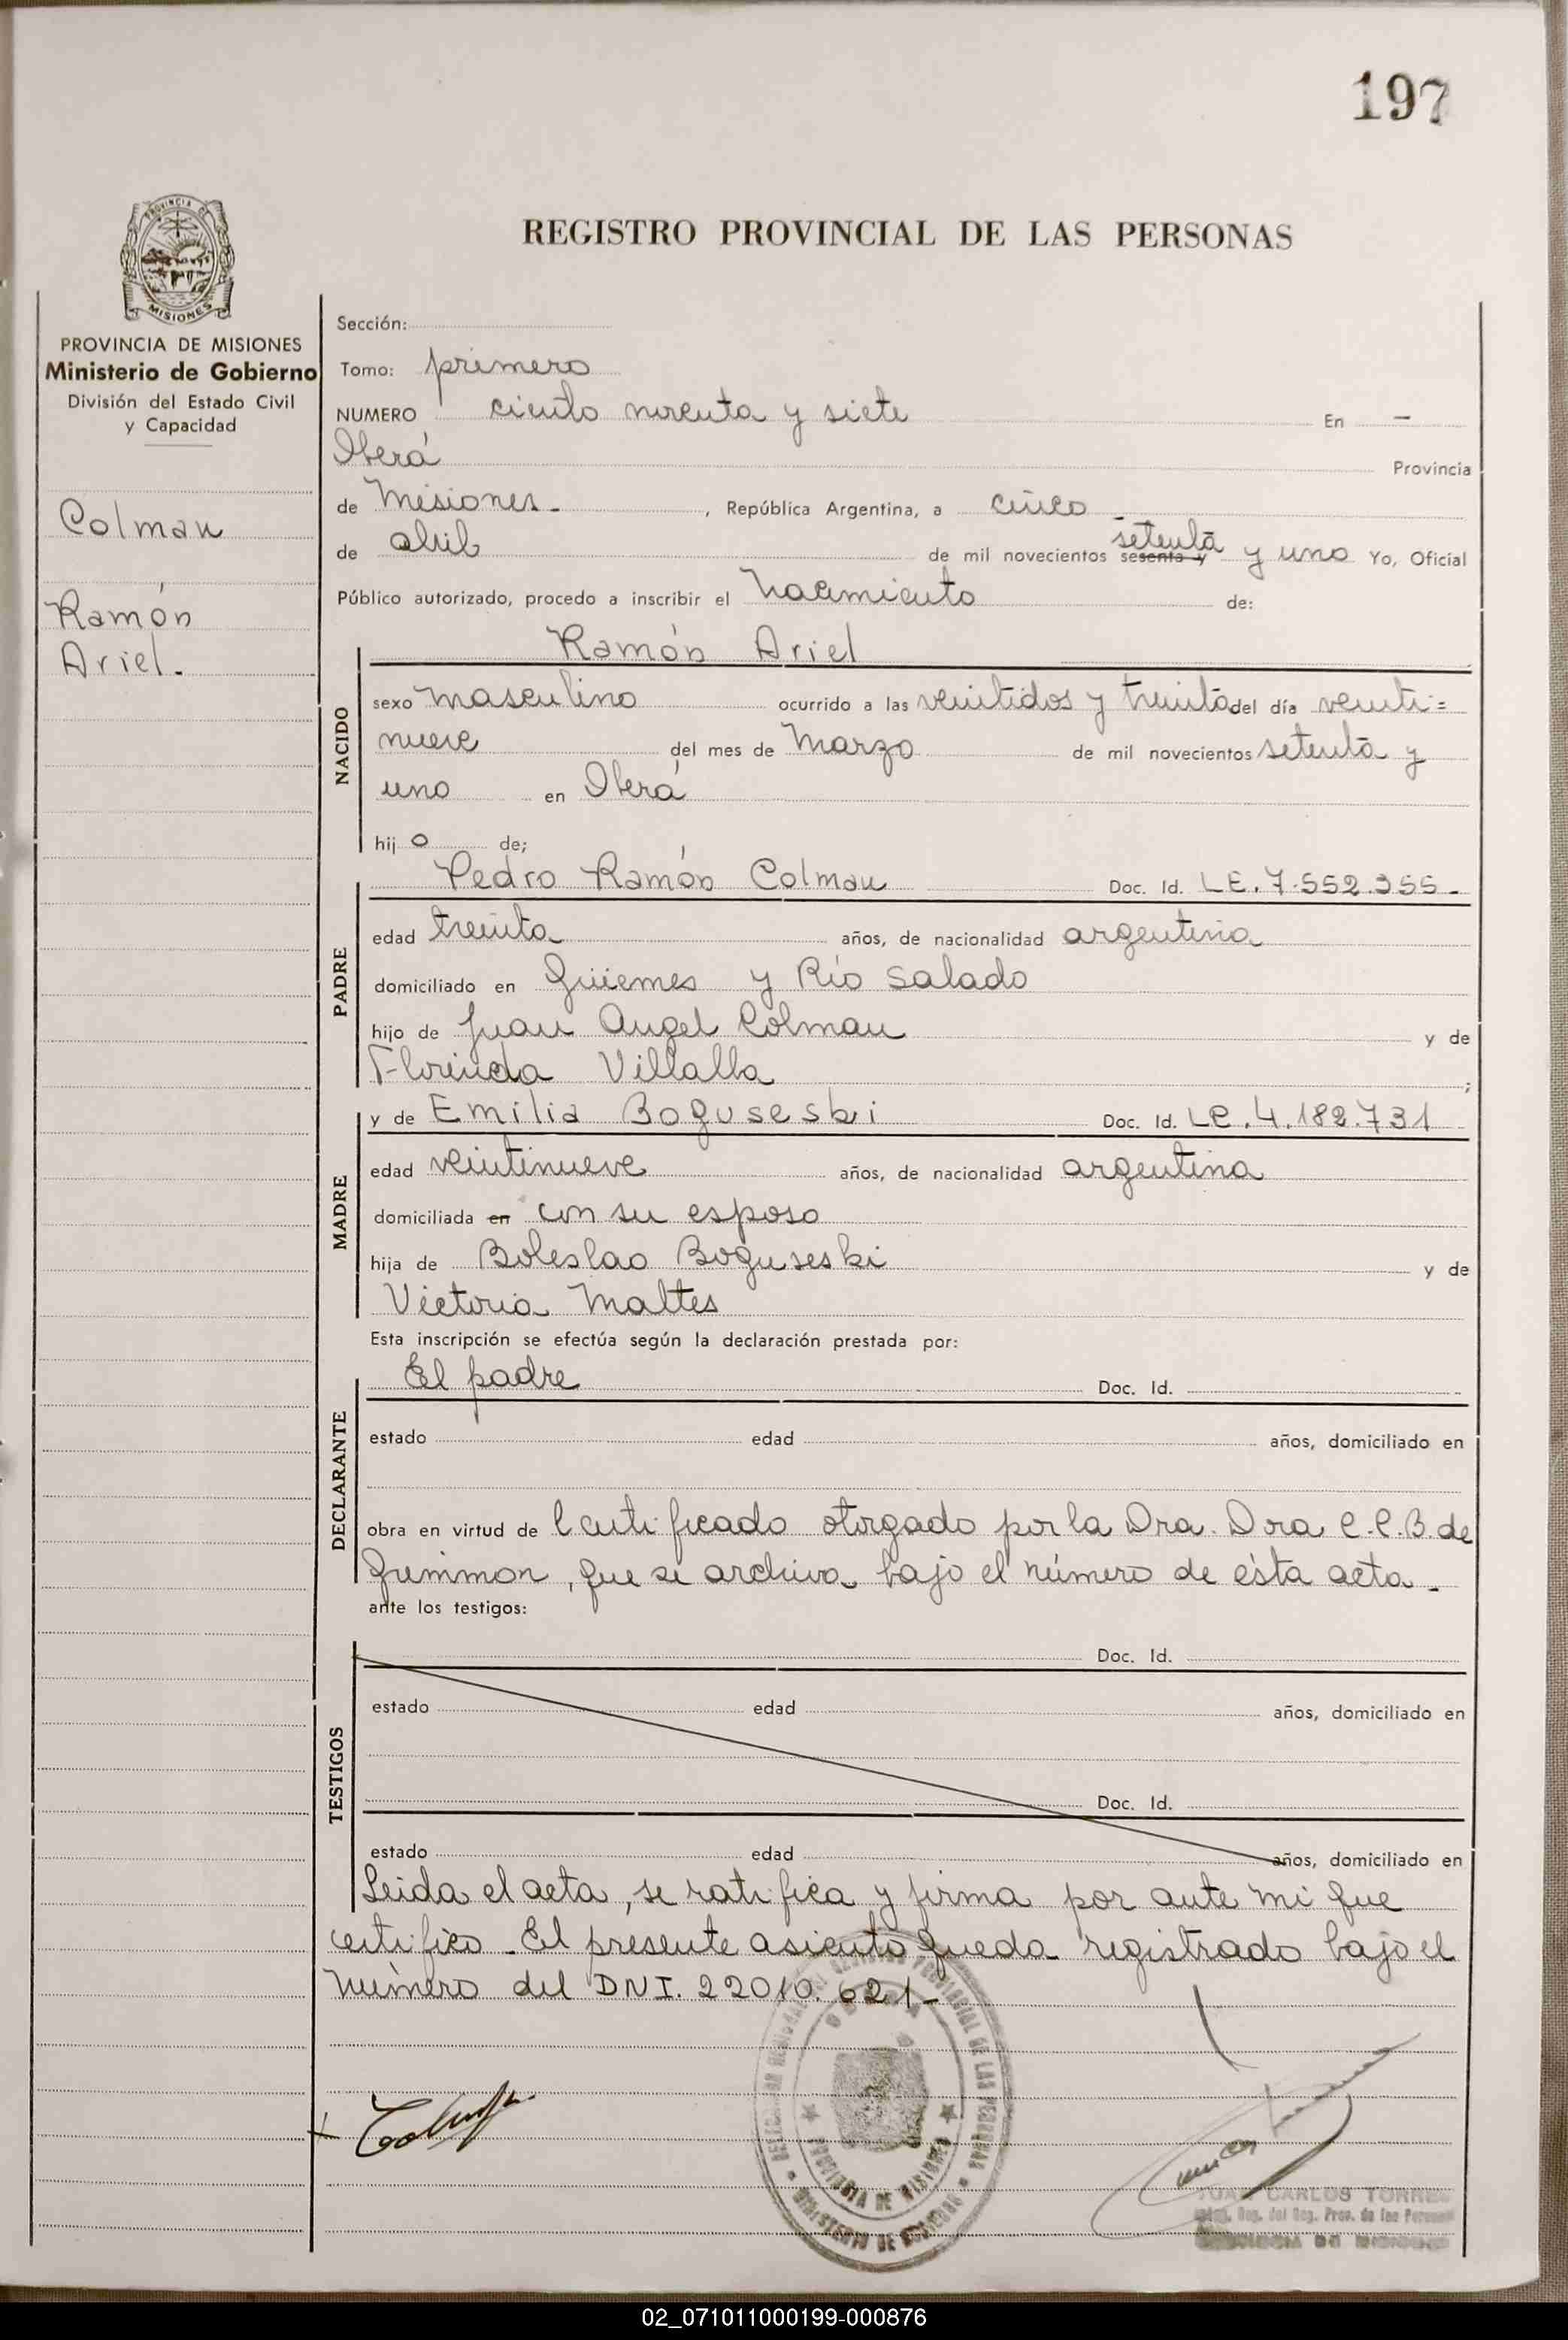 197
REGISTRO PROVINCIAL DE LAS PERSONAS
PROVINCIA DE MISIONES
Ministerio de Gobierno
División del Estado Civil
y Capacidad
Colman
Ramón
Ariel.
Sección:
Tomo: primero
NUMERO ciento noventa y siete En —
Oberá Provincia
de Misiones - , República Argentina, a cinco -
de abril de mil novecientos sesenta y setenta y uno Yo, Oficial
Público autorizado, procedo a inscribir el nacimiento de:
NACIDO
Ramón Ariel
sexo masculino ocurrido a las veintidos y treinta del día veinti=
nueve del mes de Marzo de mil novecientos setenta y
uno en Oberá
hij o de;
PADRE
Pedro Ramón Colman Doc. Id. L.E. 7.552.355-
edad treinta años, de nacionalidad argentina
domiciliado en Güemes y Río Salado
hijo de Juan Angel Colman y de
Florinda Villalba ;
MADRE
y de Emilia Boguseski Doc. Id. LC. 4.182.731
edad veintinueve años, de nacionalidad argentina
domiciliada en con su esposo
hija de Boleslao Boguseski y de
Victoria Maltes
Esta inscripción se efectúa según la declaración prestada por:
DECLARANTE
El padre Doc. Id.
estado edad años, domiciliado en
obra en virtud de Certificado otorgado por la Dra. Dora C.C.B. de
que se archiva bajo el número de ésta acta.
ante los testigos:
TESTIGOS
Doc. Id.
estado edad años, domiciliado en
Doc. Id.
estado edad años, domiciliado en
Leida el acta, se ratifica y firma por ante mi que
certifico. El presente asiento queda registrado bajo el
número del DNI. 22010.621-
PROVINCIA DE MISIONES
MINISTERIO DE GOBIERNO
JUAN CARLOS TORRES
02_071011000199-000876